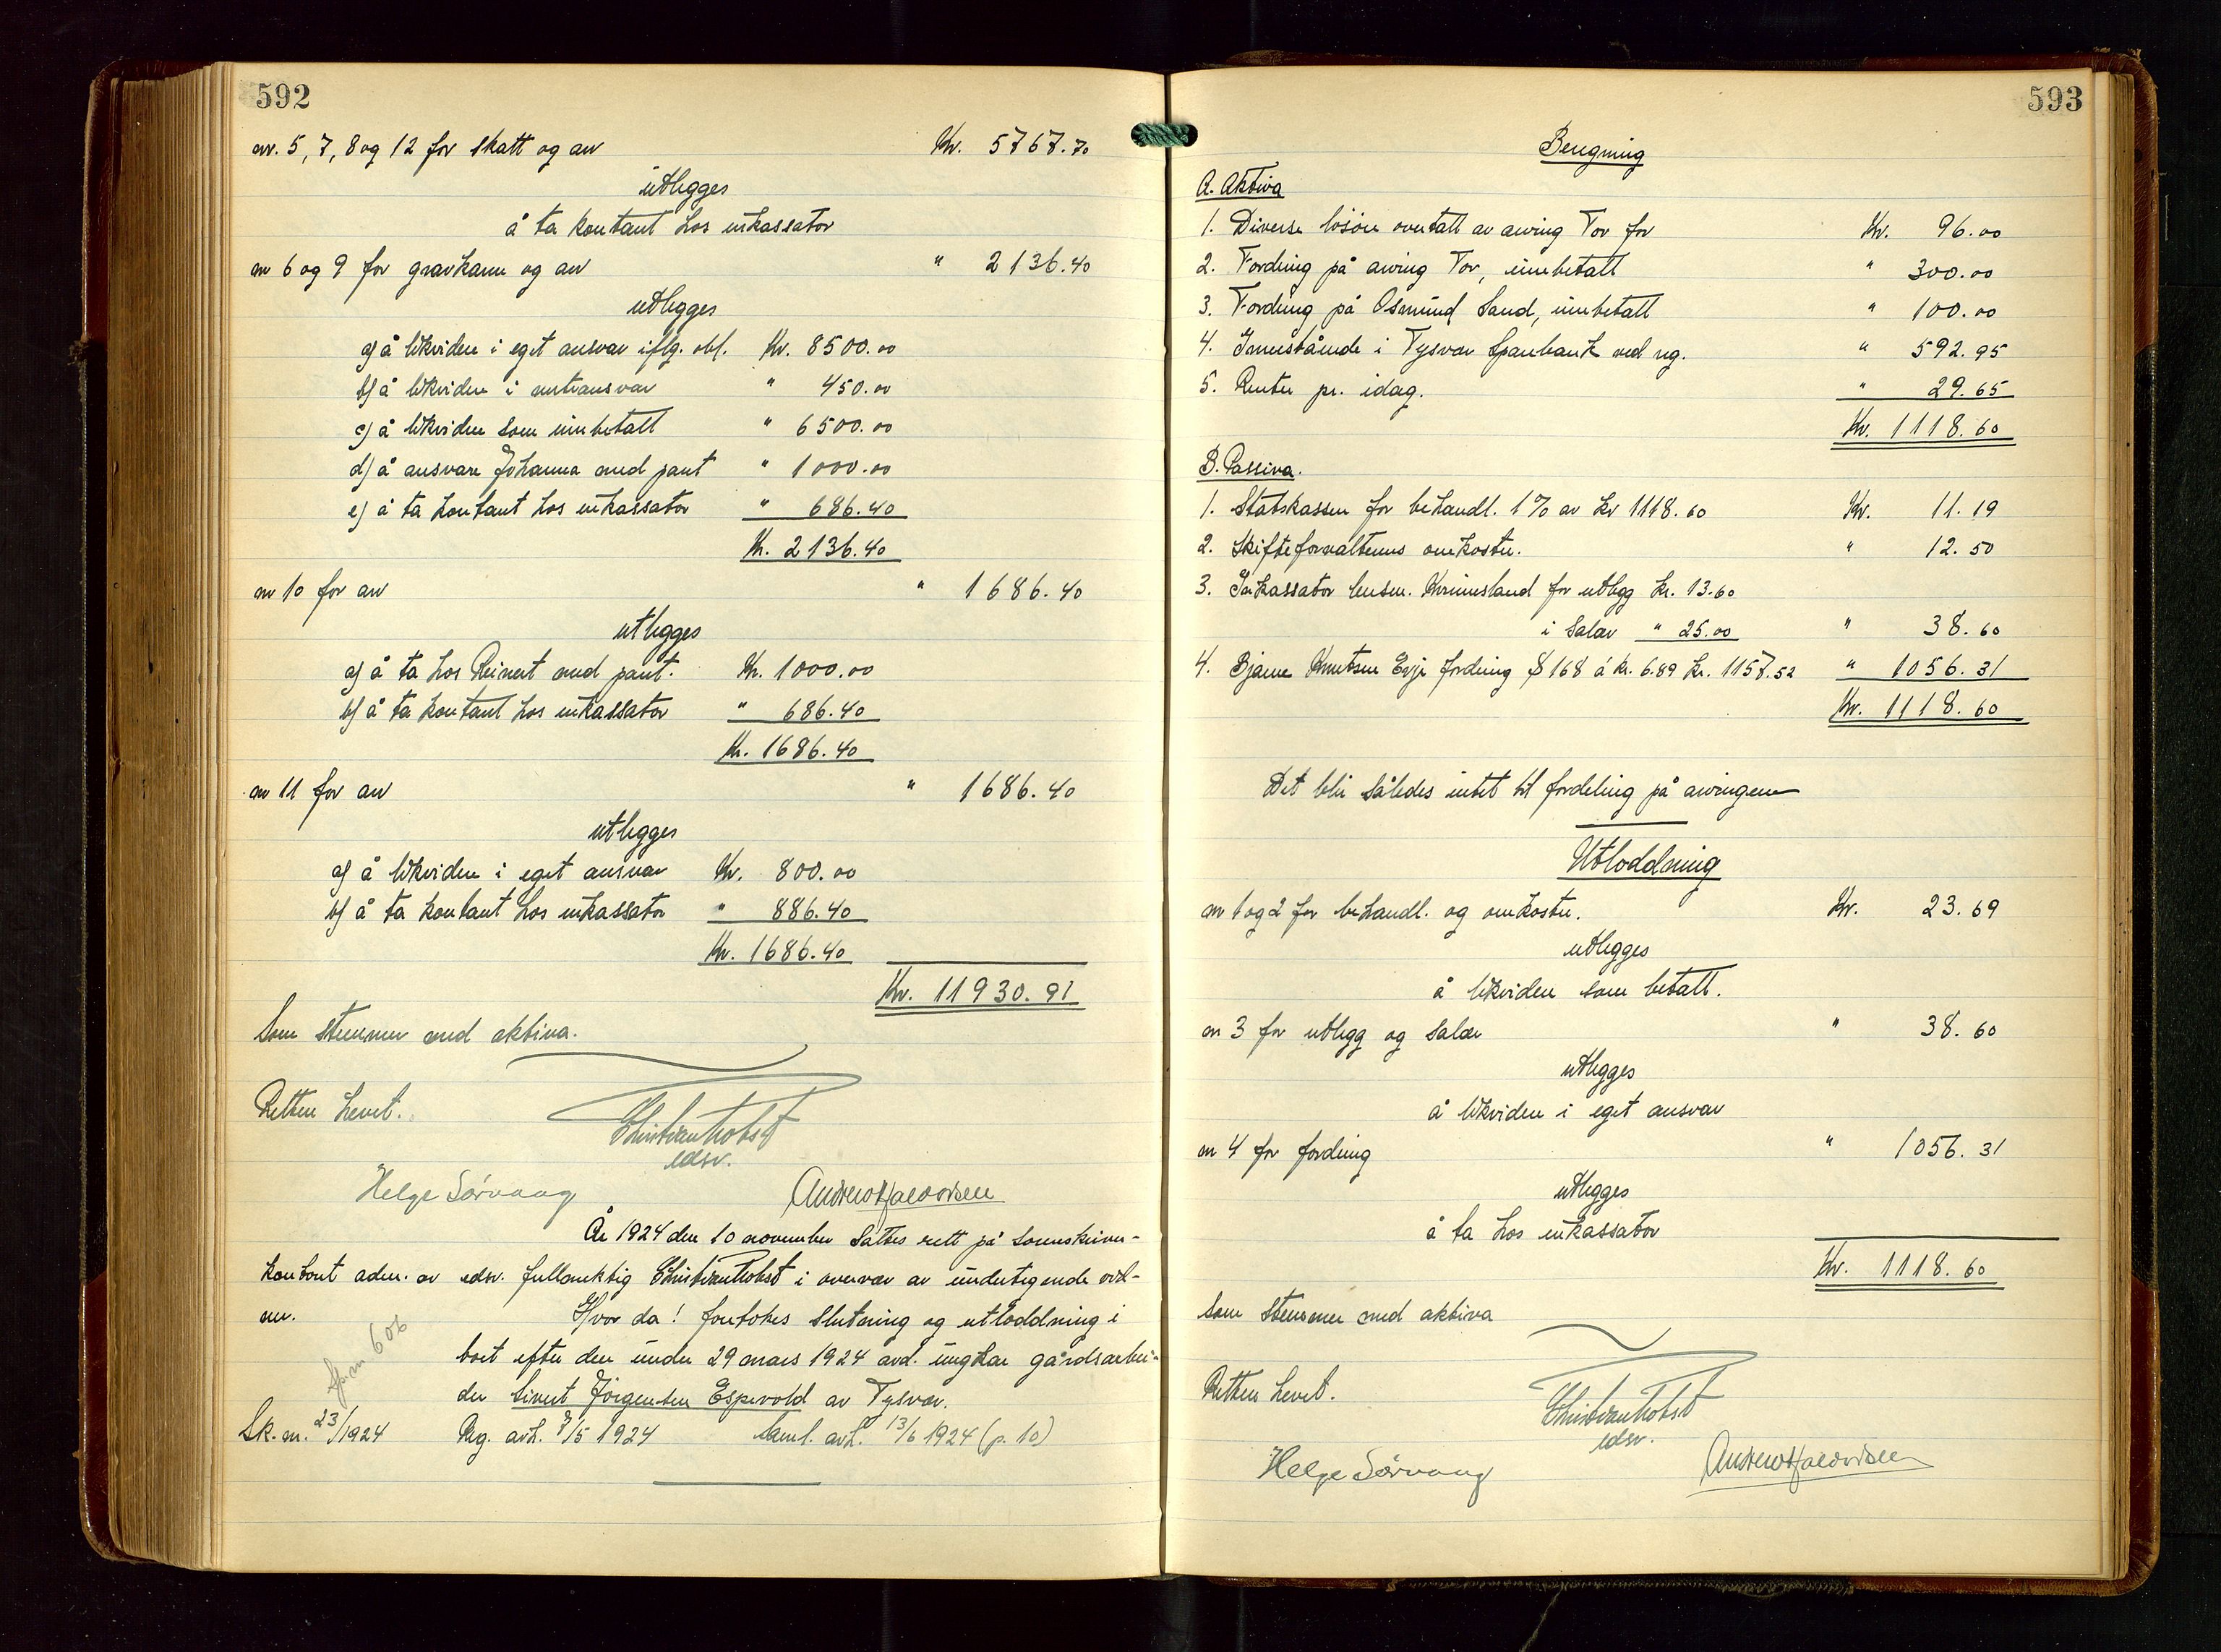 592
nr. 5, 7, 8 og 12 for skatt og arv Kr. 5767.70
utlegges
å ta kontant hos inkassator
nr 6 og 9 for gravkamn og arv " 2136.40
utlegges
a) å likvidere i eget ansvar iflg. obl. Kr. 8500.00
b) å likvidere i ansvar " 450.00
c) å likvidere som innbetalt " 6500.00
d) å ansvare Johanna med pant " 1000.00
e) å ta kontant hos inkassator " 686.40
Kr. 2136.40
nr 10 for arv " 1686.40
utlegges
a) å ta hos Reinert med pant. Kr. 1000.00
b) å ta kontant hos inkassator " 686.40
Kr. 1686.40
nr 11 for arv " 1686.40
utlegges
a) å likvidere i eget ansvar Kr. 800.00
b) å ta kontant hos inkassator " 886.40
Kr. 1686.40
Kr. 11930.91
Som stemmer med aktiva.
Retten hevet.
Christian Probst
edsv.
Helge Sörvaag Andrew Halvorsen
År 1924 den 10 november sattes rett på sorenskriver-
kontoret adm. av edsv. fullmektig Christian Probst i overvær av undertegnede vid-
ner. Hvor da! foretokes slutning og utloddning i
boet efter den under 29 mars 1924 avd. ungkar gårdsarbei-
der Sivert Jörgensen Espevold av Tysvær.
Sk. nr. 23/1924 Reg. avh. 7/5 1924 Saml. avh. 13/6 1924 (p. 10)
606
593
Beregning
A. Aktiva
1. Diverse lösöre overtatt av arving Tor for Kr. 96.00
2. Fordring på arving Tor, innbetalt " 300.00
3. Fordring på Osmund Sand, innbetalt " 100.00
4. Innestående i Tysvær Sparebank ved reg. " 592.95
5. Renter pr. idag. " 29.65
Kr. 1118.60
B. Passiva.
1. Statskassen for behandl. 1% av kr 1118.60 Kr. 11.19
2. Skifteforvalterens omkostn. " 12.50
3. Inkassator lensm. Kvinnesland for utlegg kr. 13.60
i salær " 25.00 " 38.60
4. Bjarne Knutsen Evje fordring $ 168 á kr. 6.89 kr. 1157.52 " 1056.31
Kr. 1118.60
Det blir således intet til fordeling på arvingene
Utloddning
nr 1 og 2 for behandl. og omkostn. Kr. 23.69
utlegges
å likvidere som betalt.
nr 3 for utlegg og salær " 38.60
utlegges
å likvidere i eget ansvar
nr 4 for fordring " 1056.31
utlegges
å ta hos inkassator
Kr. 1118.60
Som stemmer med aktiva
Retten hevet.
Christian Probst
edsv.
Helge Sörvaag Andrew Halvorsen